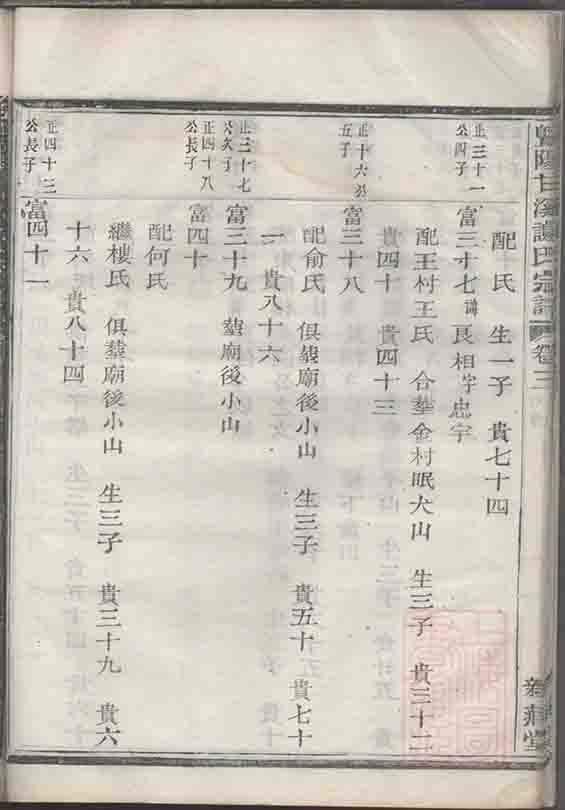 暨陽甘溪謝氏宗譜 卷三
配 氏 生一子 貴七十四
正三十一
公四子
富三十七 諱良相 字忠宇
配王村王氏 合塟金村眠犬山 生三子 貴三十二
貴四十 貴四十三
正十六公
五子
富三十八
配俞氏 俱塟廟後小山 生三子 貴五十 貴七十
一 貴八十六
正三十七
公次子
富三十九 塟廟後小山
正四十八
公長子
富四十
配何氏
繼樓氏 俱塟廟後小山 生三子 貴三十九 貴六
十六 貴八十四
正四十三
公長子
富四十一